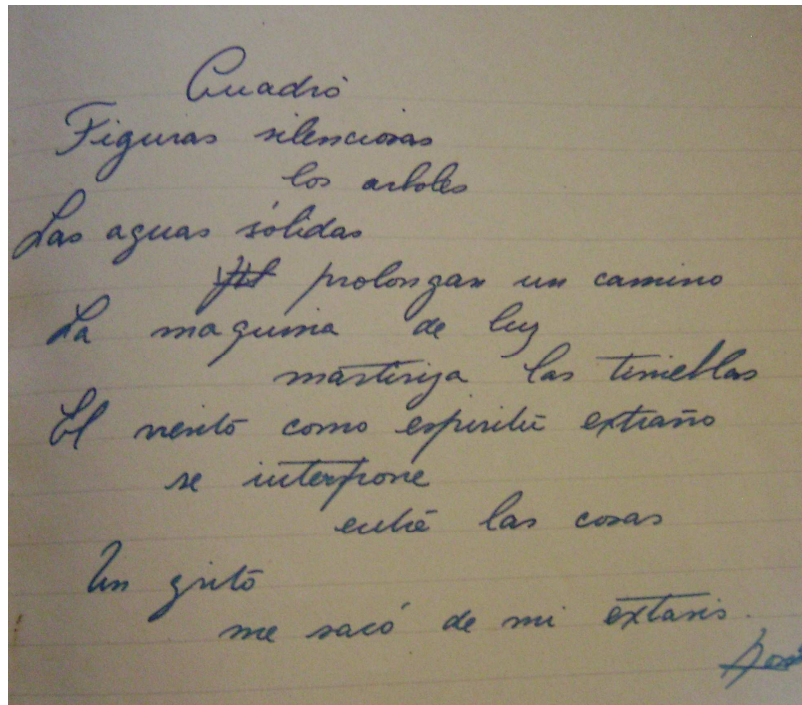 Cuadro
Figuras silenciosas
los arboles
Las aguas sólidas
prolongan un camino
La maquina de luz
martiriza las tinieblas
El viento como espiritu extraño
se interpone
entre las cosas
Un grito
me sacó de mi extasis.